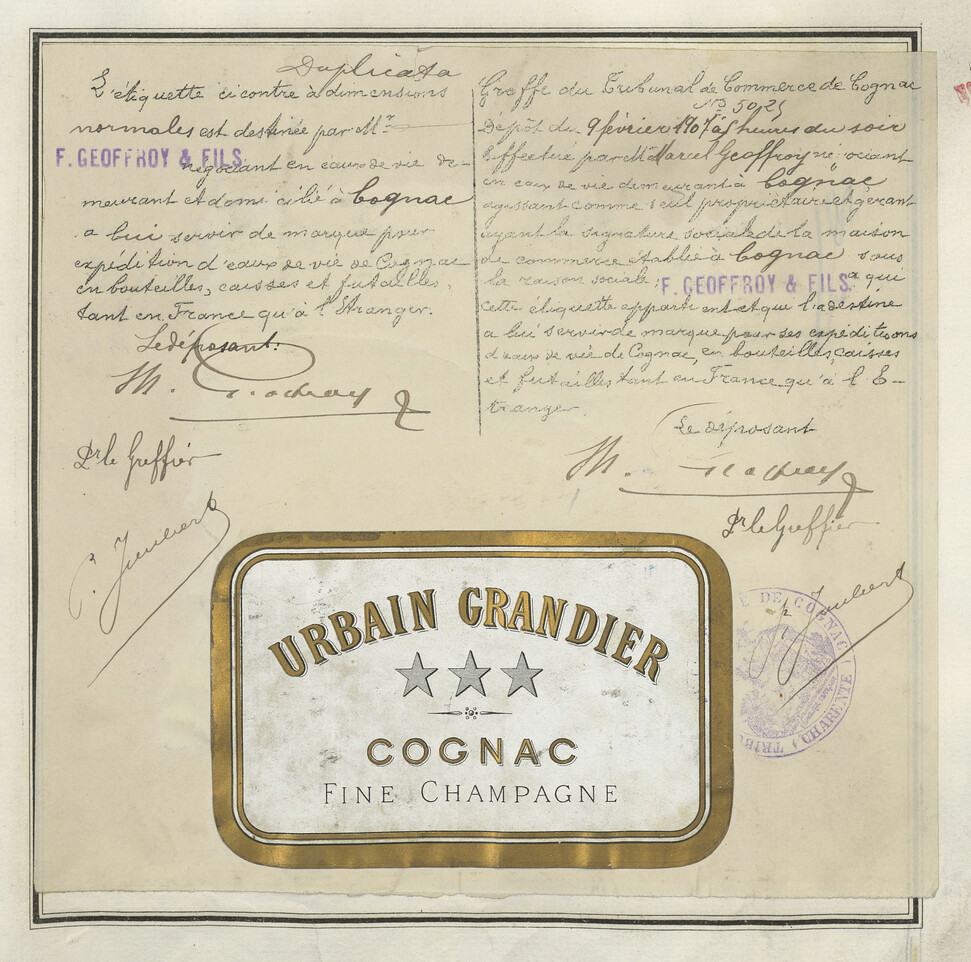 Duplicata
L'étiquette ci contre à dimensions
normales est destinée par Mr
F. GEOFFROY & FILS.
négociant en eaux de vie de-
meurant et domicilié à Cognac
a lui servir de marque pour
expédition d'eaux de vie de Cognac
en bouteilles, caisses et futailles,
tant en France qu'à l'Etranger.
Le déposant.
Pr le Greffier
Greffe du Tribunal de Commerce de Cognac
No 5025
Dépôt du 9 février 1907 à 5 heures du soir
Effectué par Mr Marcel Geoffroy négociant
en eaux de vie demeurant à Cognac
agissant comme seul propriétaire et gérant
ayant la signature sociale de la maison
de commerce établie à Cognac sous
la raison sociale: F. GEOFFROY & FILS. a qui
cette étiquette appartient et qui l'a destine
a lui servir de marque pour ses expéditions
d'eaux de vie de Cognac, en bouteilles, caisses
et futailles tant en France qu'à l'E-
tranger.
Le déposant
Pr le Greffier
DE COGNAC
(CHARENTE)
URBAIN GRANDIER
COGNAC
FINE CHAMPAGNE